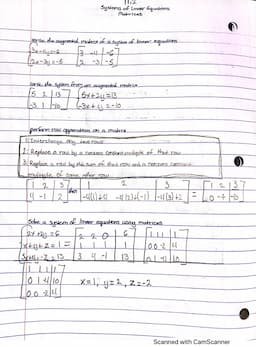 11.2
Systems of Linear Equations
Matrices
write the augmented matrix of a system of linear equations
3x-4y=-6 [3 -4 | -6
2x-3y=-5 2 -3 | -5]
write the system from an augmented matrix
[5 2 | 13 [5x+2y=13
-3 1 | -10] -3x+y=-10
perform row operations on a matrix
1) Interchange any two rows
2) Replace a row by a nonzero constant multiple of that row
3) Replace a row by the sum of that row and a nonzero constant
multiple of some other row
[1 2 | 3 1 2 3 [1 2 | 3
4 -1 | 2] then -4(1)+4 -4(2)+(-1) -4(3)+2 = 0 -9 -10]
Solve a System of linear equations using matrices
2x+2y=6 2 2 0 | 6 1 1 1 | 1
x+y+z=1 = 1 1 1 | 1 0 0 -2 | 4
3x+4y-z=13 3 4 -1 | 13 0 1 -4 | 10
1 1 1 | 1
0 1 -4 | 10 x=1, y=2, z=-2
0 0 -2 | 4
Scanned with CamScanner